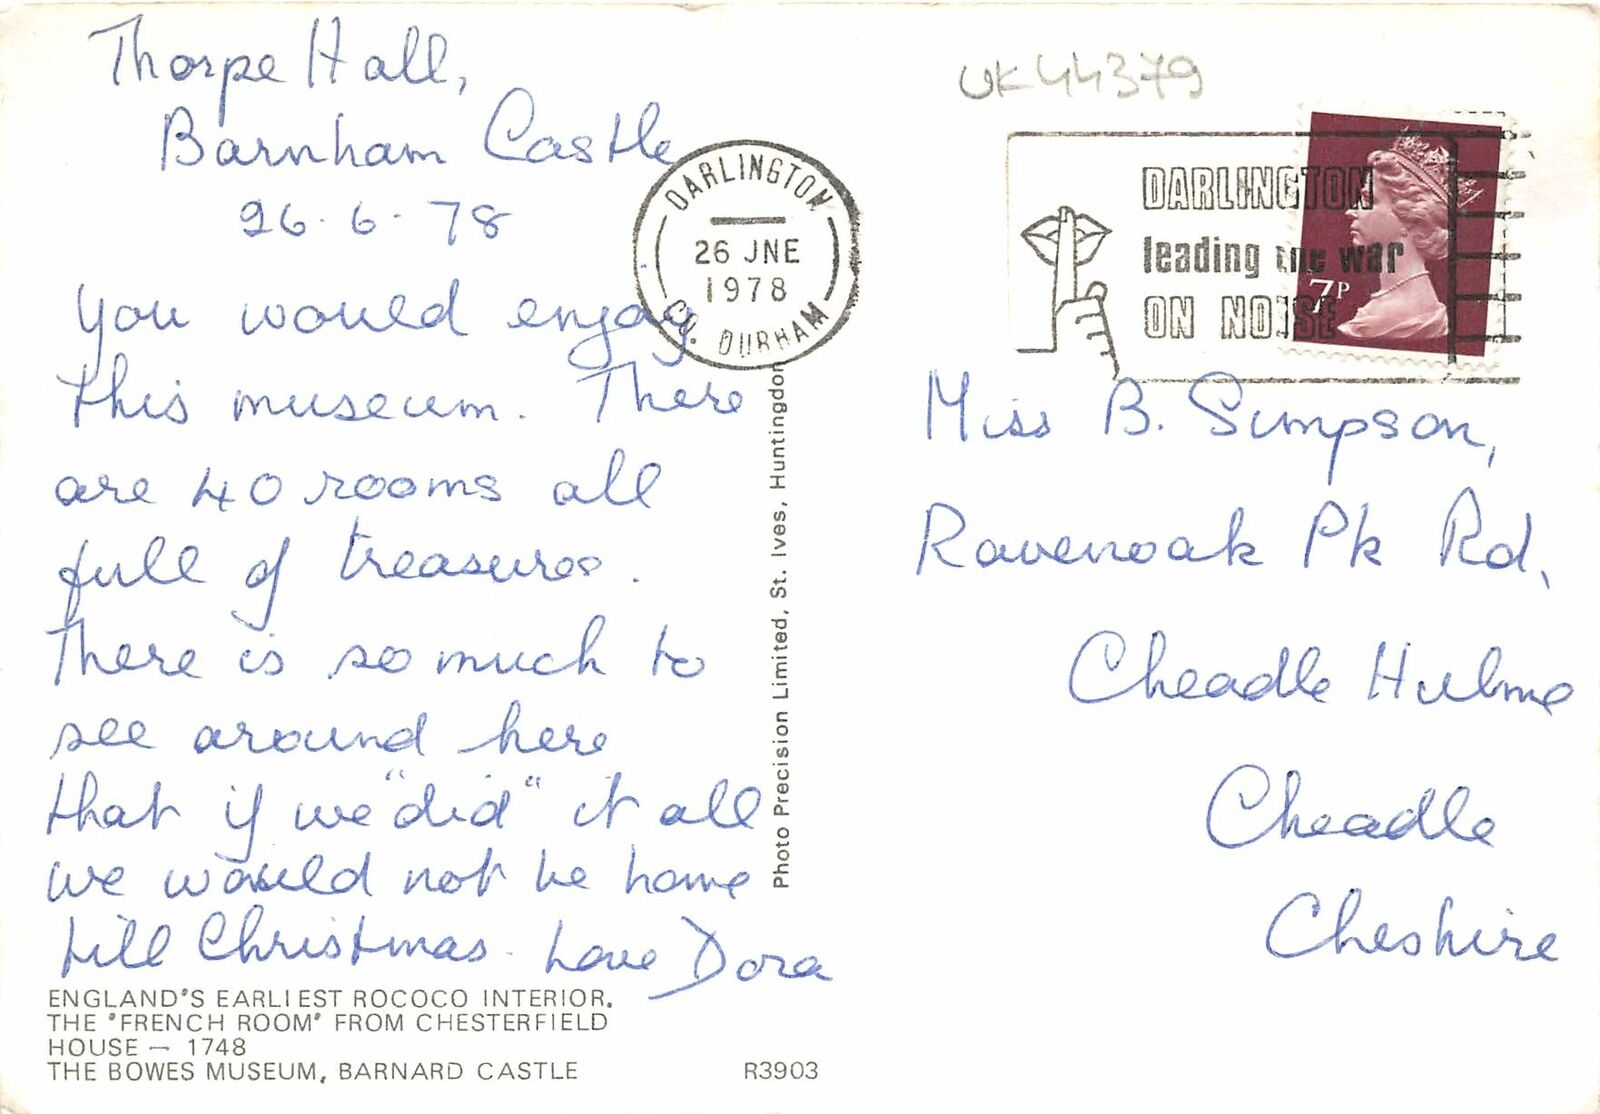 Thorpe Hall,
Barnham Castle
26.6.78
You would enjoy
this museum. There
are 40 rooms all
full of treasures.
There is so much to
see around here
that if we "did" it all
we would not be home
till Christmas. Love Dora
ENGLAND'S EARLIEST ROCOCO INTERIOR.
THE 'FRENCH ROOM' FROM CHESTERFIELD
HOUSE — 1748
THE BOWES MUSEUM, BARNARD CASTLE
R3903
Photo Precision Limited, St. Ives, Huntingdon
DARLINGTON
26 JNE
1978
CO. DURHAM
UK44379
DARLINGTON
leading the war
ON NOISE
7P
Miss B. Simpson,
Ravenoak Pk Rd,
Cheadle Hulme
Cheadle
Cheshire